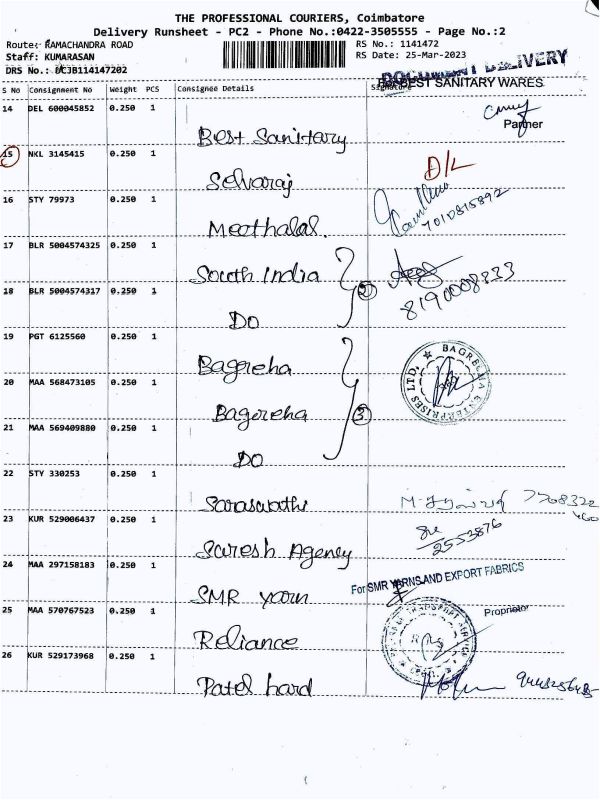 THE PROFESSIONAL COURIERS, Coimbatore
Delivery Runsheet - PC2 - Phone No.:0422-3505555 - Page No.:2
Route: RAMACHANDRA ROAD RS No.: 1141472
Staff: KUMARASAN RS Date: 25-Mar-2023
DRS No.: DCJB114147202 DOCUMENT DELIVERY
S No Consignment No Weight PCS Consignee Details Signature
For BEST SANITARY WARES
14 DEL 600045852 0.250 1 Best Sanitary
Partner
15 NKL 3145415 0.250 1 Selvaraj D/L
16 STY 79973 0.250 1 Meothalal. 7010815892
17 BLR 5004574325 0.250 1 South India
18 BLR 5004574317 0.250 1 DO 2 8190008333
19 PGT 6125560 0.250 1 Bagreha
BAGRECHA ENTERPRISES LTD.
20 MAA 568473105 0.250 1 Bagreha 3
21 MAA 569409880 0.250 1 DO
22 STY 330253 0.250 1 Saraswathi 7708322
23 KUR 529006437 0.250 1 Suresh Agency 2553876
24 MAA 297158183 0.250 1 SMR yarn
For SMR YARNS AND EXPORT FABRICS
Proprietor
25 MAA 570767523 0.250 1 Reliance
26 KUR 529173968 0.250 1 Patel hard